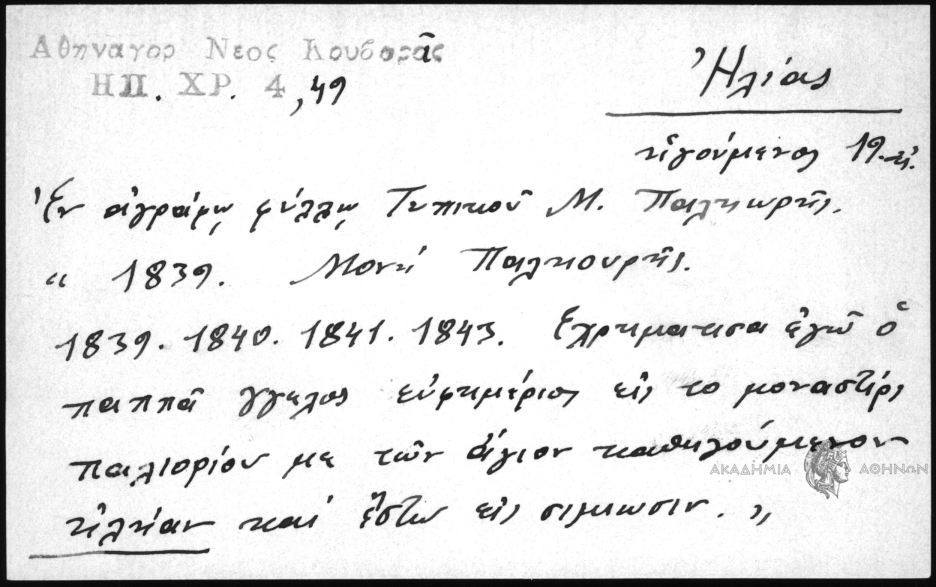 Ἀθηναγορ Νεος Κουβαρᾶς
ΗΠ. ΧΡ. 4, 49
Ἠλίας
ἡγούμενος 19.
Ἐν ἀγράφῳ φύλλῳ Τυπικοῦ Μ. Παλιουρῆς.
" 1839. Μονή Παλιουρῆς.
1839. 1840. 1841. 1843. Ἐχρημάτισα ἐγῶ ὁ
παππᾶ γγελος εὐφημέριος εἰς το μοναστίρι
παλιορίου με τῶν ἅγιον καθηγούμενον
ἠλήαν καί ἔστω εἰς σιμίωσιν. "
ΑΚΑΔΗΜΙΑ ΑΘΗΝΩΝ